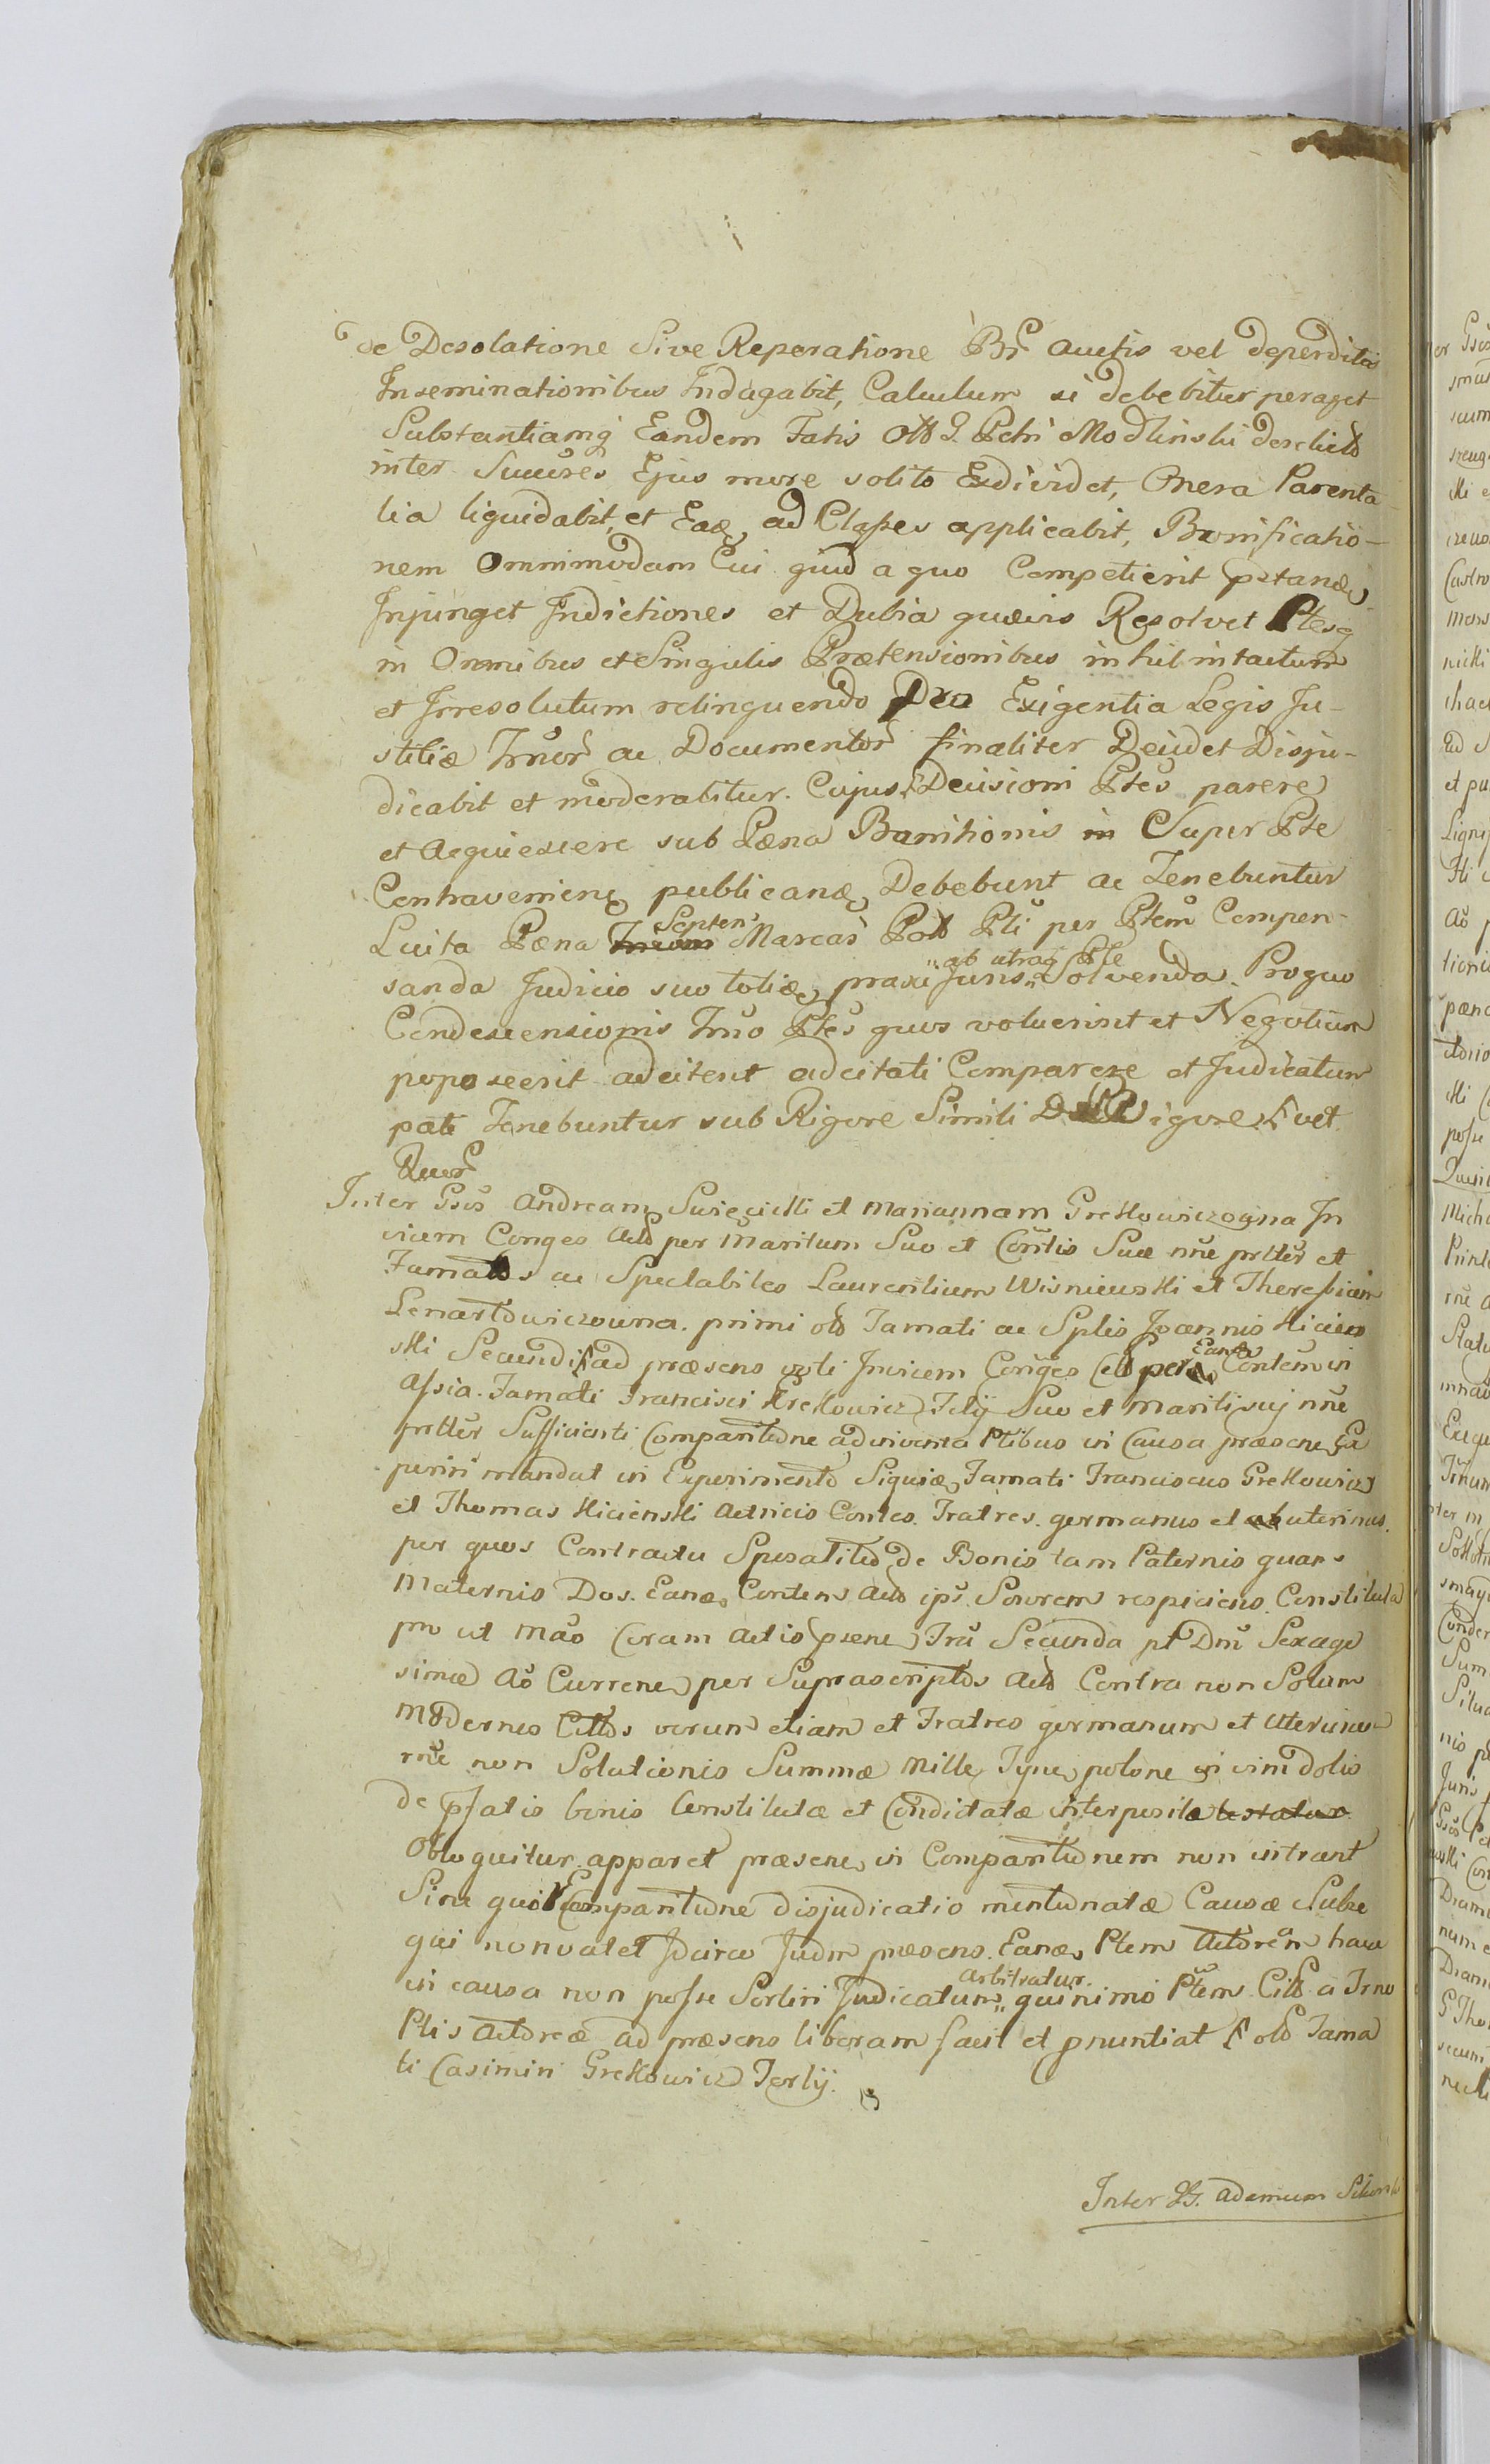 de Desolatione Sive Reperatione Br̃ auctis vel deperditis
Inseminationibus Indagabit, Calculum si debebitur peraget
Substantiamq Eandem Fatis Olt G. Petri Modlinski derelict
inter Succr̃es Ejus more solito Exdividet, Onera Parenta
lia liquidabit, et Eaꝫ ad Classes applicabit, Bonificatio-
nem Omnimodam Cui quid a quo Competierit pstanꝫ
Injunget Indictiones et Dubia quævis Resolvet Ptesq
in Omnibus et Singulis Prætensionibus inhil intactum
et Irresolutum relinquendo Pro Exigentia Legis Ju-
stitiæ Imor̃ ac Documentor̃ finaliter Decidet Disju-
dicabit et moderabitur. Cujus Decisioni Ptes parere
et acquiescere sub Pæna Banitionis in Super Pte
Contravenienꝫ publicanꝫ Debebunt ac Tenebuntur
Luita Pæna Septem Marcas Pol Pti per Ptem Compen-
sanda Judicio suo totieꝫ praxi Juris ab utraq Pte Solvenda. Pro quo
Condescensionis Trno Ptes quos voluerint et Negotium
poposcerit adcitent adcitati Comparere et Judicatum
pati Tenebuntur sub Rigore Simili Vigore vet
Quer̃
Inter Gsos Andream Swięcicki et Mariannam Grekowiczogna In
vicem Conges Act per Maritum Suo et Contis Suæ nne prtter et
Famatos ac Spectabiles Laurentium Wisniewski et Theressiam
Lenartowiczowna. primi olt Famati ac Sptis Joannis Kicien
ski Secundi ad præsens voti Invicem Conges Cit per Eanꝫ Contem in
Assia. Famati Francisci Grekowicz Filij Suo et Mariti suj nne
prtter Sufficienti Comparitione adinvicem Ptibus in Causa præsenꝫ Ex
periri mandat in Experimento Siquiꝫ Famati Franciscus Grekowicz
et Thomas Kicienski Actricis Contes. Fratres germanus et uterinus
per quos Contractu Sposalitio de Bonis tam Paternis quam
Maternis Dos. Eanꝫ Contem Act ipi Sororem respiciens. Constituta
pro ut Mao Coram Actis psene Fra Secunda pt Dni Sexage
simæ Ao Currenꝫ per Suprascriptos Act Contra non Solum
Modernos Cittos verum etiam et Fratres germanum et Uterinum
rne non Solutionis Summæ Mille Tynꝫ polone in vim dotis
de psatis bonis Constitutæ et Condictatæ interposita testatur
Obloquitur. apparet præsenꝫ in Comparitionem non intrant
Sine quor Comparitione disjudicatio mentionatæ Causæ Subse
qui non valet Idcirco Judm præsens. Eanꝫ Ptem Actorem hacce
in causa non posse Sortiri Judicatum arbitratur. quinimo Ptem Citt a Trno
Ptis Actoreæ ad præsens liberam facit et pnuntiat olt Fama
ti Casimiri Grekowicz Tertij.
Inter G. Adamum